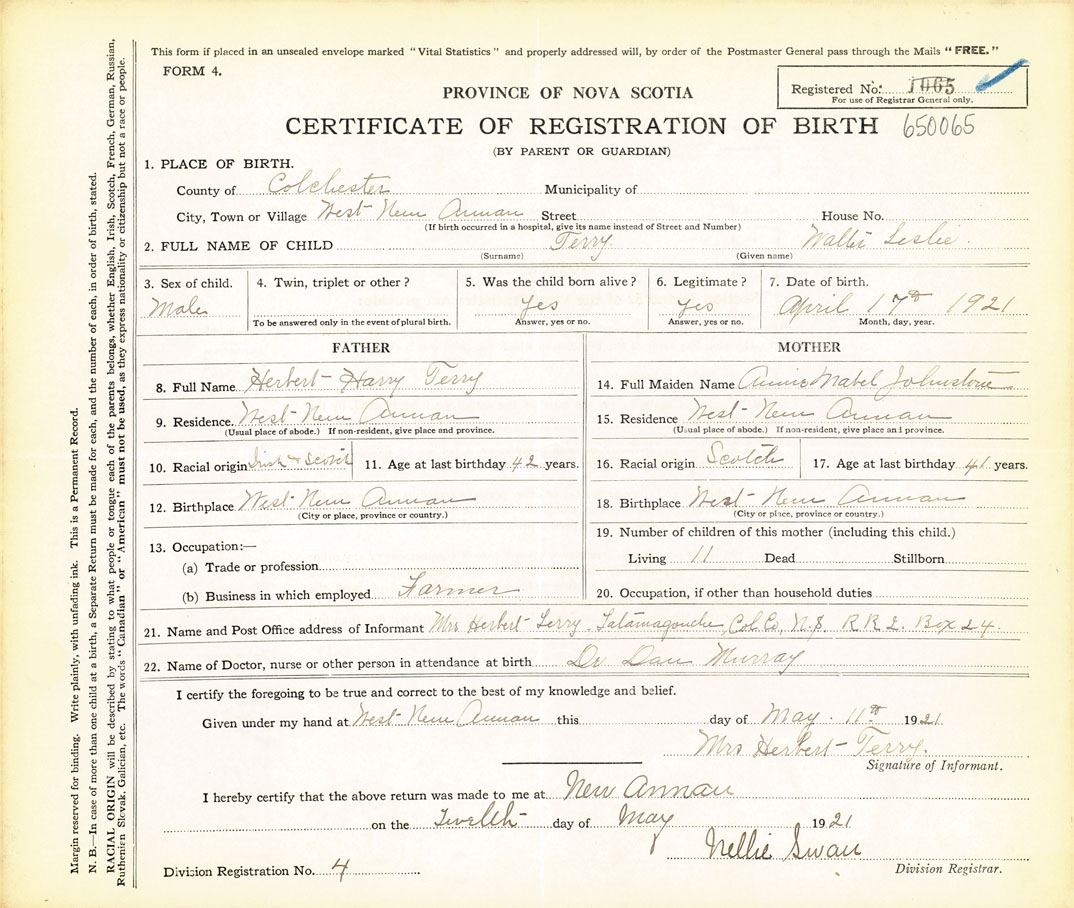 This form if placed in an unsealed envelope marked "Vital Statistics" and properly addressed will, by order of the Postmaster General pass through the Mails "FREE."
FORM 4.
Registered No. 1065
For use of Registrar General only.
PROVINCE OF NOVA SCOTIA
CERTIFICATE OF REGISTRATION OF BIRTH 650065
(BY PARENT OR GUARDIAN)
1. PLACE OF BIRTH.
County of Colchester Municipality of
City, Town or Village West New Annan Street House No.
(If birth occurred in a hospital, give its name instead of Street and Number)
2. FULL NAME OF CHILD Terry Leslie
(Surname) (Given name)
3. Sex of child. 4. Twin, triplet or other? 5. Was the child born alive? 6. Legitimate? 7. Date of birth.
Male Yes Yes April 17th 1921
To be answered only in the event of plural birth. Answer, yes or no. Answer, yes or no. Month, day, year.
FATHER
8. Full Name Herbert Harry Terry
9. Residence. West New Annan
(Usual place of abode.) If non-resident, give place and province.
10. Racial origin Irish & Scotch 11. Age at last birthday 42 years.
12. Birthplace West New Annan
(City or place, province or country.)
13. Occupation:—
(a) Trade or profession
(b) Business in which employed Farmer
MOTHER
14. Full Maiden Name Annie Mabel Johnstone
15. Residence West New Annan
(Usual place of abode.) If non-resident, give place and province.
16. Racial origin Scotch 17. Age at last birthday 41 years.
18. Birthplace West New Annan
(City or place, province or country.)
19. Number of children of this mother (including this child.)
Living 11 Dead Stillborn
20. Occupation, if other than household duties
21. Name and Post Office address of Informant Mrs Herbert Terry, Tatamagouche, Col Co, N.S. R R 2. Box 24.
22. Name of Doctor, nurse or other person in attendance at birth Dr Dan Murray
I certify the foregoing to be true and correct to the best of my knowledge and belief.
Given under my hand at West New Annan this day of May 11th 1921
Mrs Herbert Terry.
Signature of Informant.
I hereby certify that the above return was made to me at New Annan
on the Twelth day of May 1921
Nellie Swan
Division Registration No. 4 Division Registrar.
Margin reserved for binding. Write plainly, with unfading ink. This is a Permanent Record.
N. B.—In case of more than one child at a birth, a Separate Return must be made for each, and the number of each, in order of birth, stated.
RACIAL ORIGIN will be described by stating to what people or tongue each of the parents belongs, whether English, Irish, Scotch, French, German, Russian,
Ruthenian Slovak, Galician, etc. The words "Canadian" or "American" must not be used, as they express nationality or citizenship but not a race or people.